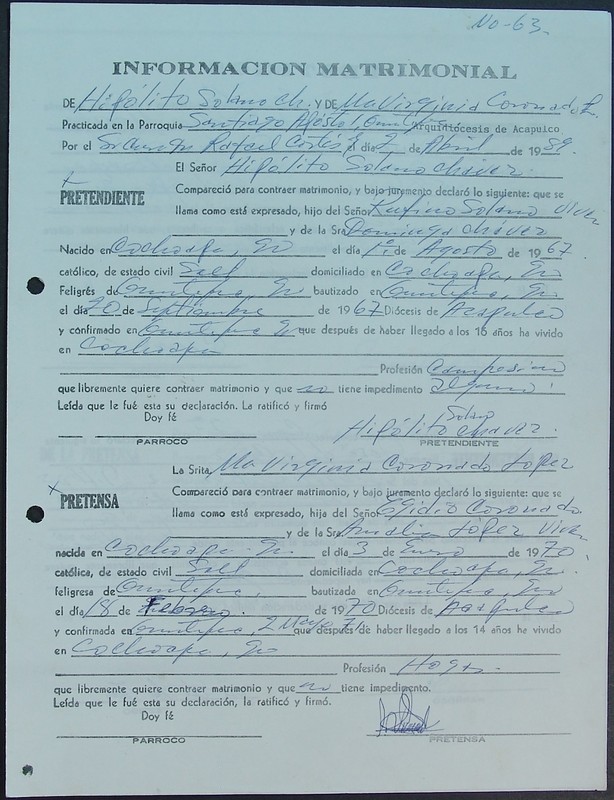 No-63.
INFORMACION MATRIMONIAL
DE Hipólito Solano Ch. Y DE Ma Virginia Coronado L.
Practicada en la Parroquia Santiago Apóstol, Arquidiócesis de Acapulco
Por el Sr. Cura Rafael Cortés el día 2 de Abril de 1989.
El Señor Hipólito Solano Chávez.
PRETENDIENTE
Compareció para contraer matrimonio, y bajo juramento declaró lo siguiente: que se
llama como está expresado, hijo del Señor Rufino Solano Viven
y de la Sra Dominga Chávez
Nacido en Cochoapa, Gro el día 1º de Agosto de 1967.
católico, de estado civil Solt domiciliado en Cochoapa, Gro
Feligrés de Ometepec, Gro bautizado en Ometepec, Gro
el día 20 de Septiembre de 1967 Diócesis de Acapulco
y confirmado en Ometepec Gro que después de haber llegado a los 16 años ha vivido
en Cochoapa
Profesión Campesino
que libremente quiere contraer matrimonio y que no tiene impedimento alguno.
Leída que le fué esta su declaración. La ratificó y firmó
Doy fé
Solano
Hipólito Chávez.
PARROCO PRETENDIENTE
La Srita, Ma Virginia Coronado López
PRETENSA
Compareció para contraer matrimonio, y bajo juramento declaró lo siguiente: que se
llama como está expresado, hija del Señor Egidio Coronado
y de la Sra Amalia López Viven
nacida en Cochoapa Gro. el día 3 de Enero de 1970.
católica, de estado civil Solt domiciliada en Cochoapa, Gro.
feligresa de Ometepec, bautizada en Ometepec, Gro
el día 18 de Febrero. de 1970 Diócesis de Acapulco
y confirmada en Ometepec, 2 Mayo 71 que después de haber llegado a los 14 años ha vivido
en Cochoapa, Gro
Profesión Hogar.
que libremente quiere contraer matrimonio y que no tiene impedimento.
Leída que le fué esta su declaración, la ratificó y firmó.
Doy fé
PARROCO PRETENSA